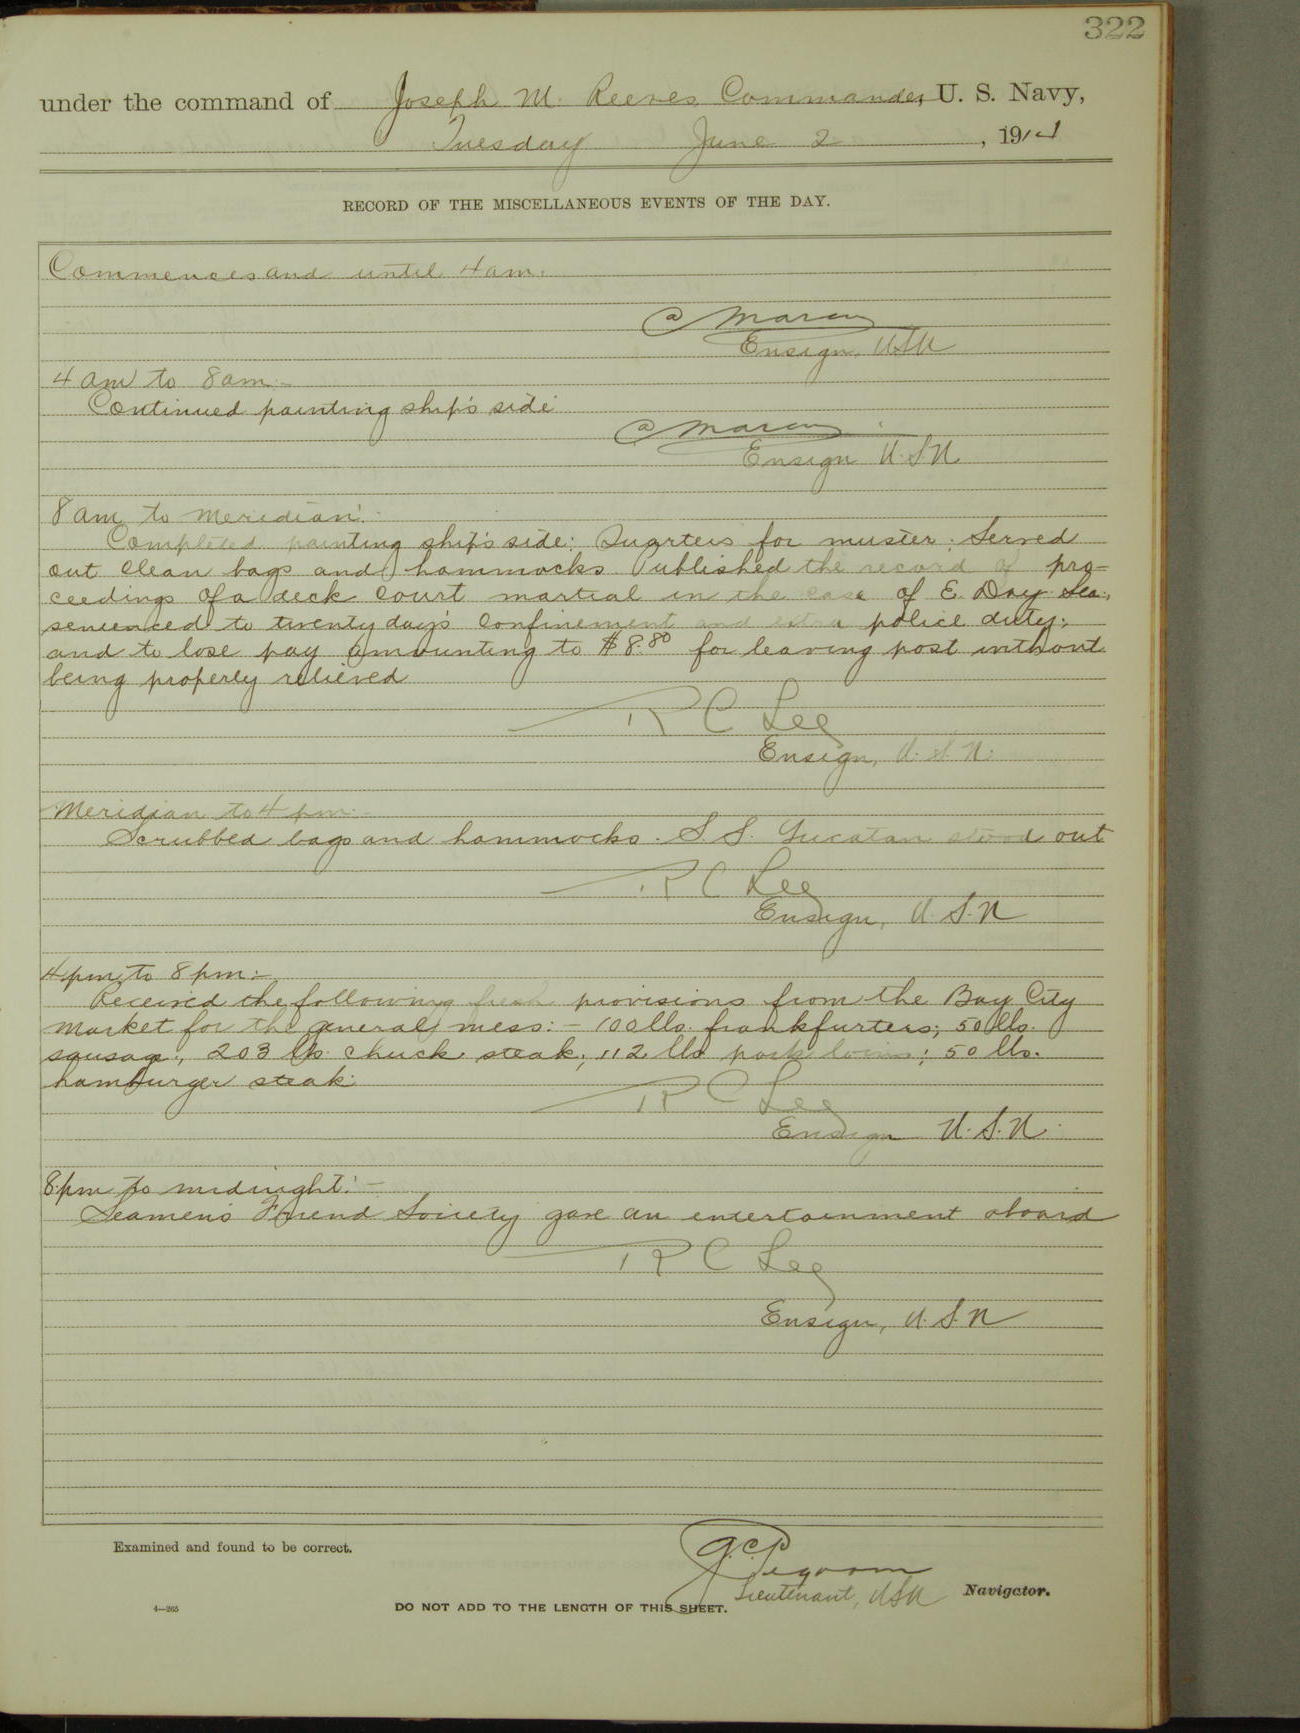 322
under the command of Joseph M. Reeves Commander, U. S. Navy,
Tuesday June 2, 1914
RECORD OF THE MISCELLANEOUS EVENTS OF THE DAY.
Commences and until 4 am.
Ensign, USN
4 am to 8 am:-
Continued painting ship's side
Ensign U.S.N
8 am to meridian:-
Completed painting ship's side: Quarters for muster: Served
out clean bags and hammocks Published the record of pro-
ceedings of a deck court martial in the case of E. Day Sea.,
sentenced to twenty day's confinement and extra police duty;
and to lose pay amounting to $8.80 for leaving post without
being properly relieved
R C Lee
Ensign, U.S.N.
Meridian to 4 pm:-
Scrubbed bags and hammocks. S.S. Yucatan stood out
R C Lee
Ensign, U.S.N
4 pm to 8 pm:-
Received the following fresh provisions from the Bay City
Market for the general mess:- 100 lbs. frankfurters; 50 lbs.
sausage; 203 lbs. chuck steak; 112 lbs pork loins; 50 lbs.
hamburger steak.
R C Lee
Ensign U.S.N.
8 pm to midnight:-
Seamen's Friend Society gave an entertainment aboard
R C Lee
Ensign, U.S.N
Examined and found to be correct.
Lieutenant, USN Navigator.
4—265
DO NOT ADD TO THE LENGTH OF THIS SHEET.